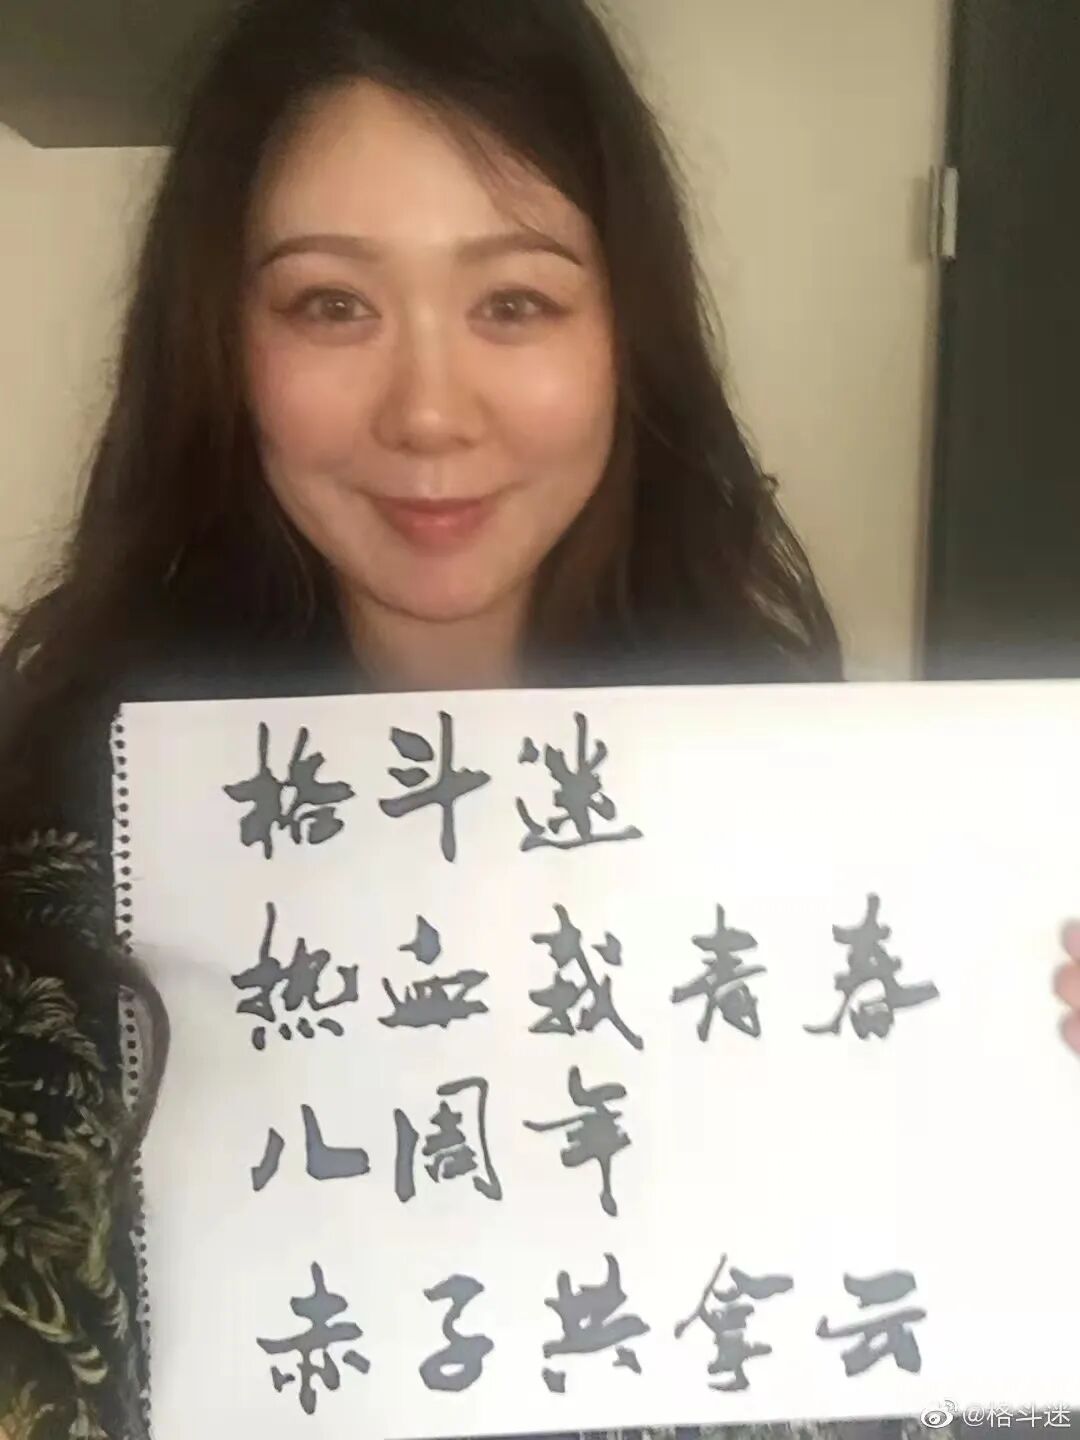 格斗迷
热血栽青春
八周年
赤子共拿云
@格斗迷